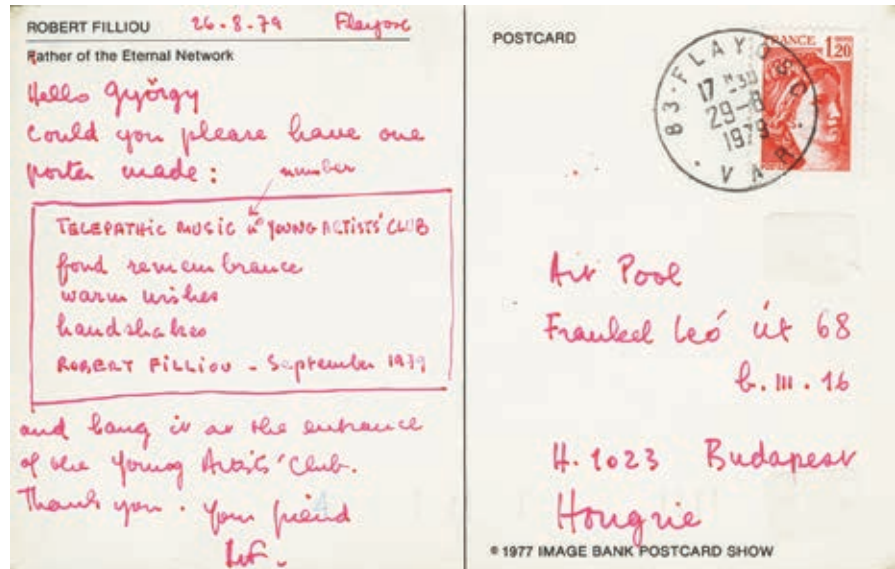 ROBERT FILLIOU 26-8-79 Flayosc
Father of the Eternal Network
Hello György
could you please have one
poster made:
number
TELEPATHIC MUSIC n° YOUNG ARTISTS' CLUB
fond remembrance
warm wishes
handshakes
ROBERT FILLIOU - September 1979
and hang it at the entrance
of the Young Artists' Club.
Thank you. Your friend
POSTCARD
FRANCE 1,20
83-FLAYOSC
17 H 30
29-8
1979
VAR
Art Pool
Frankel Leó út 68
b. III. 16
H. 1023 Budapest
Hongrie
© 1977 IMAGE BANK POSTCARD SHOW